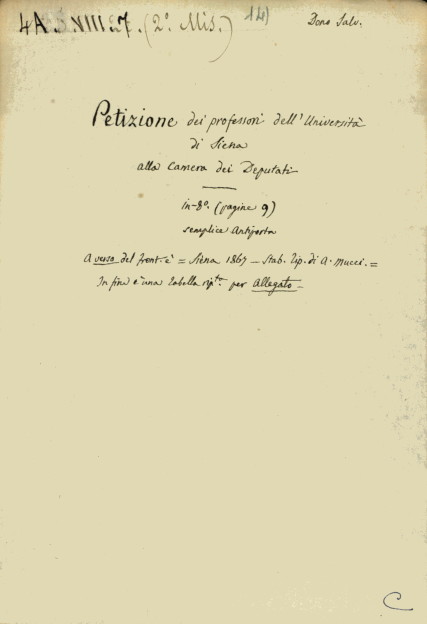 4A. VIII. 7. (2º. Mis.) 14) Dono Salv.
Petizione dei professori dell'Università
di Siena
alla Camera dei Deputati
in-8º. (pagine 9)
semplice Antiporta
A verso del front. è = Siena 1867 — Stab. Tip. di A. Mucci. =
In fine è una tabella rip.ta per Allegato —
C